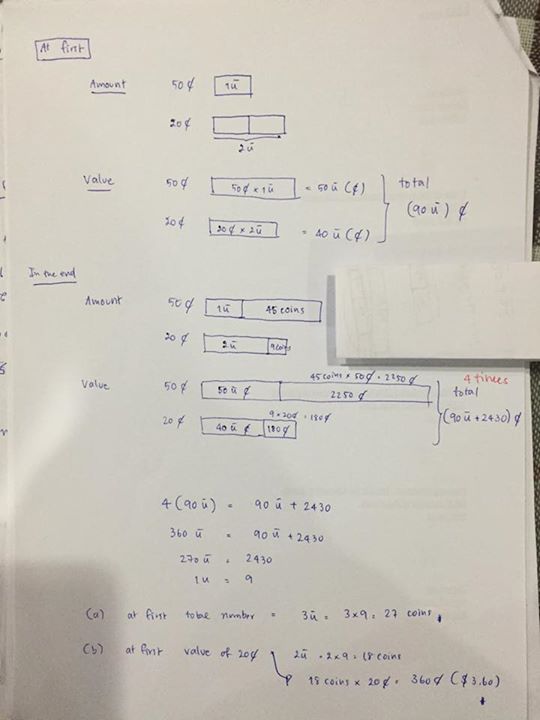 At first
Amount 50 ¢ 1ū
20 ¢
2ū
Value 50 ¢ 50¢ × 1ū = 50 ū (¢) total
(90 ū) ¢
20 ¢ 20¢ × 2ū = 40 ū (¢)
In the end
Amount 50 ¢ 1ū 45 coins
20 ¢ 2ū 9coins
45 coins × 50¢ = 2250 ¢ 4 times
Value 50¢ 50 ū ¢ 2250 ¢ total
9 × 20¢ = 180¢ (90 ū + 2430) ¢
20 ¢ 40 ū ¢ 180¢
4 (90 ū) = 90 ū + 2430
360 ū = 90 ū + 2430
270 ū = 2430
1u = 9
(a) at first total number = 3ū = 3 × 9 = 27 coins
(b) at first value of 20¢ 2ū = 2 × 9 = 18 coins
18 coins × 20¢ = 360¢ ($3.60)